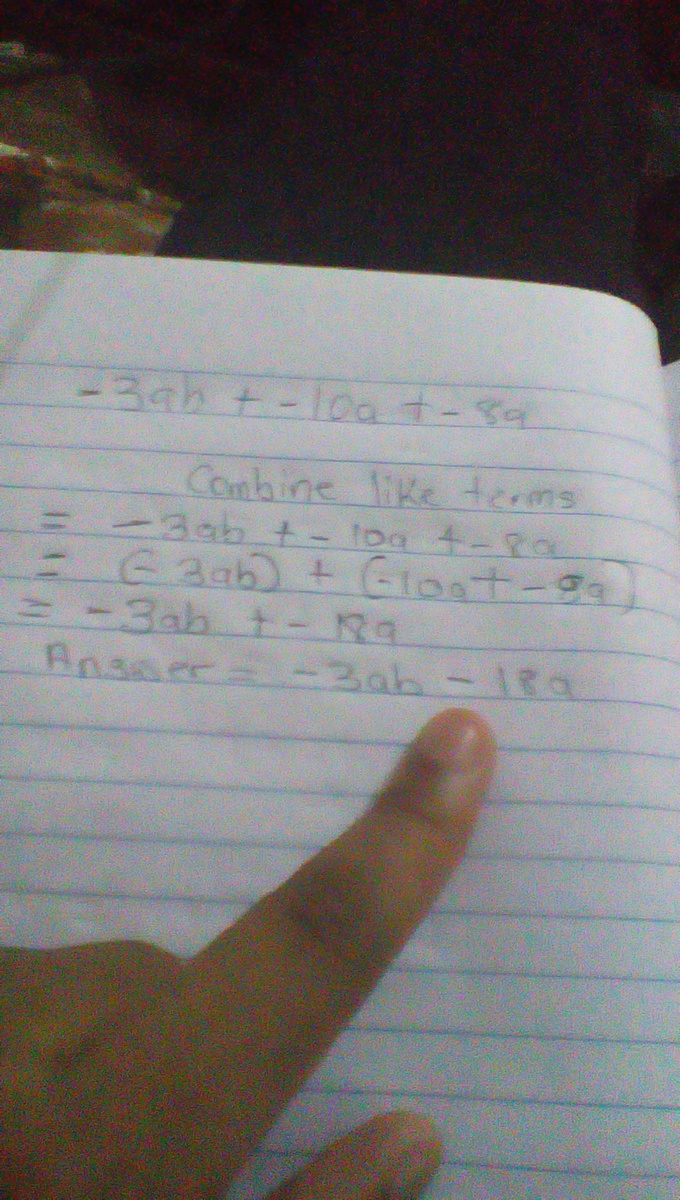 -3ab + -10a + -8a
Combine like terms
= -3ab + - 10a + -8a
= (-3ab) + (-10a + -8a)
= -3ab + - 18a
Answer = -3ab - 18a